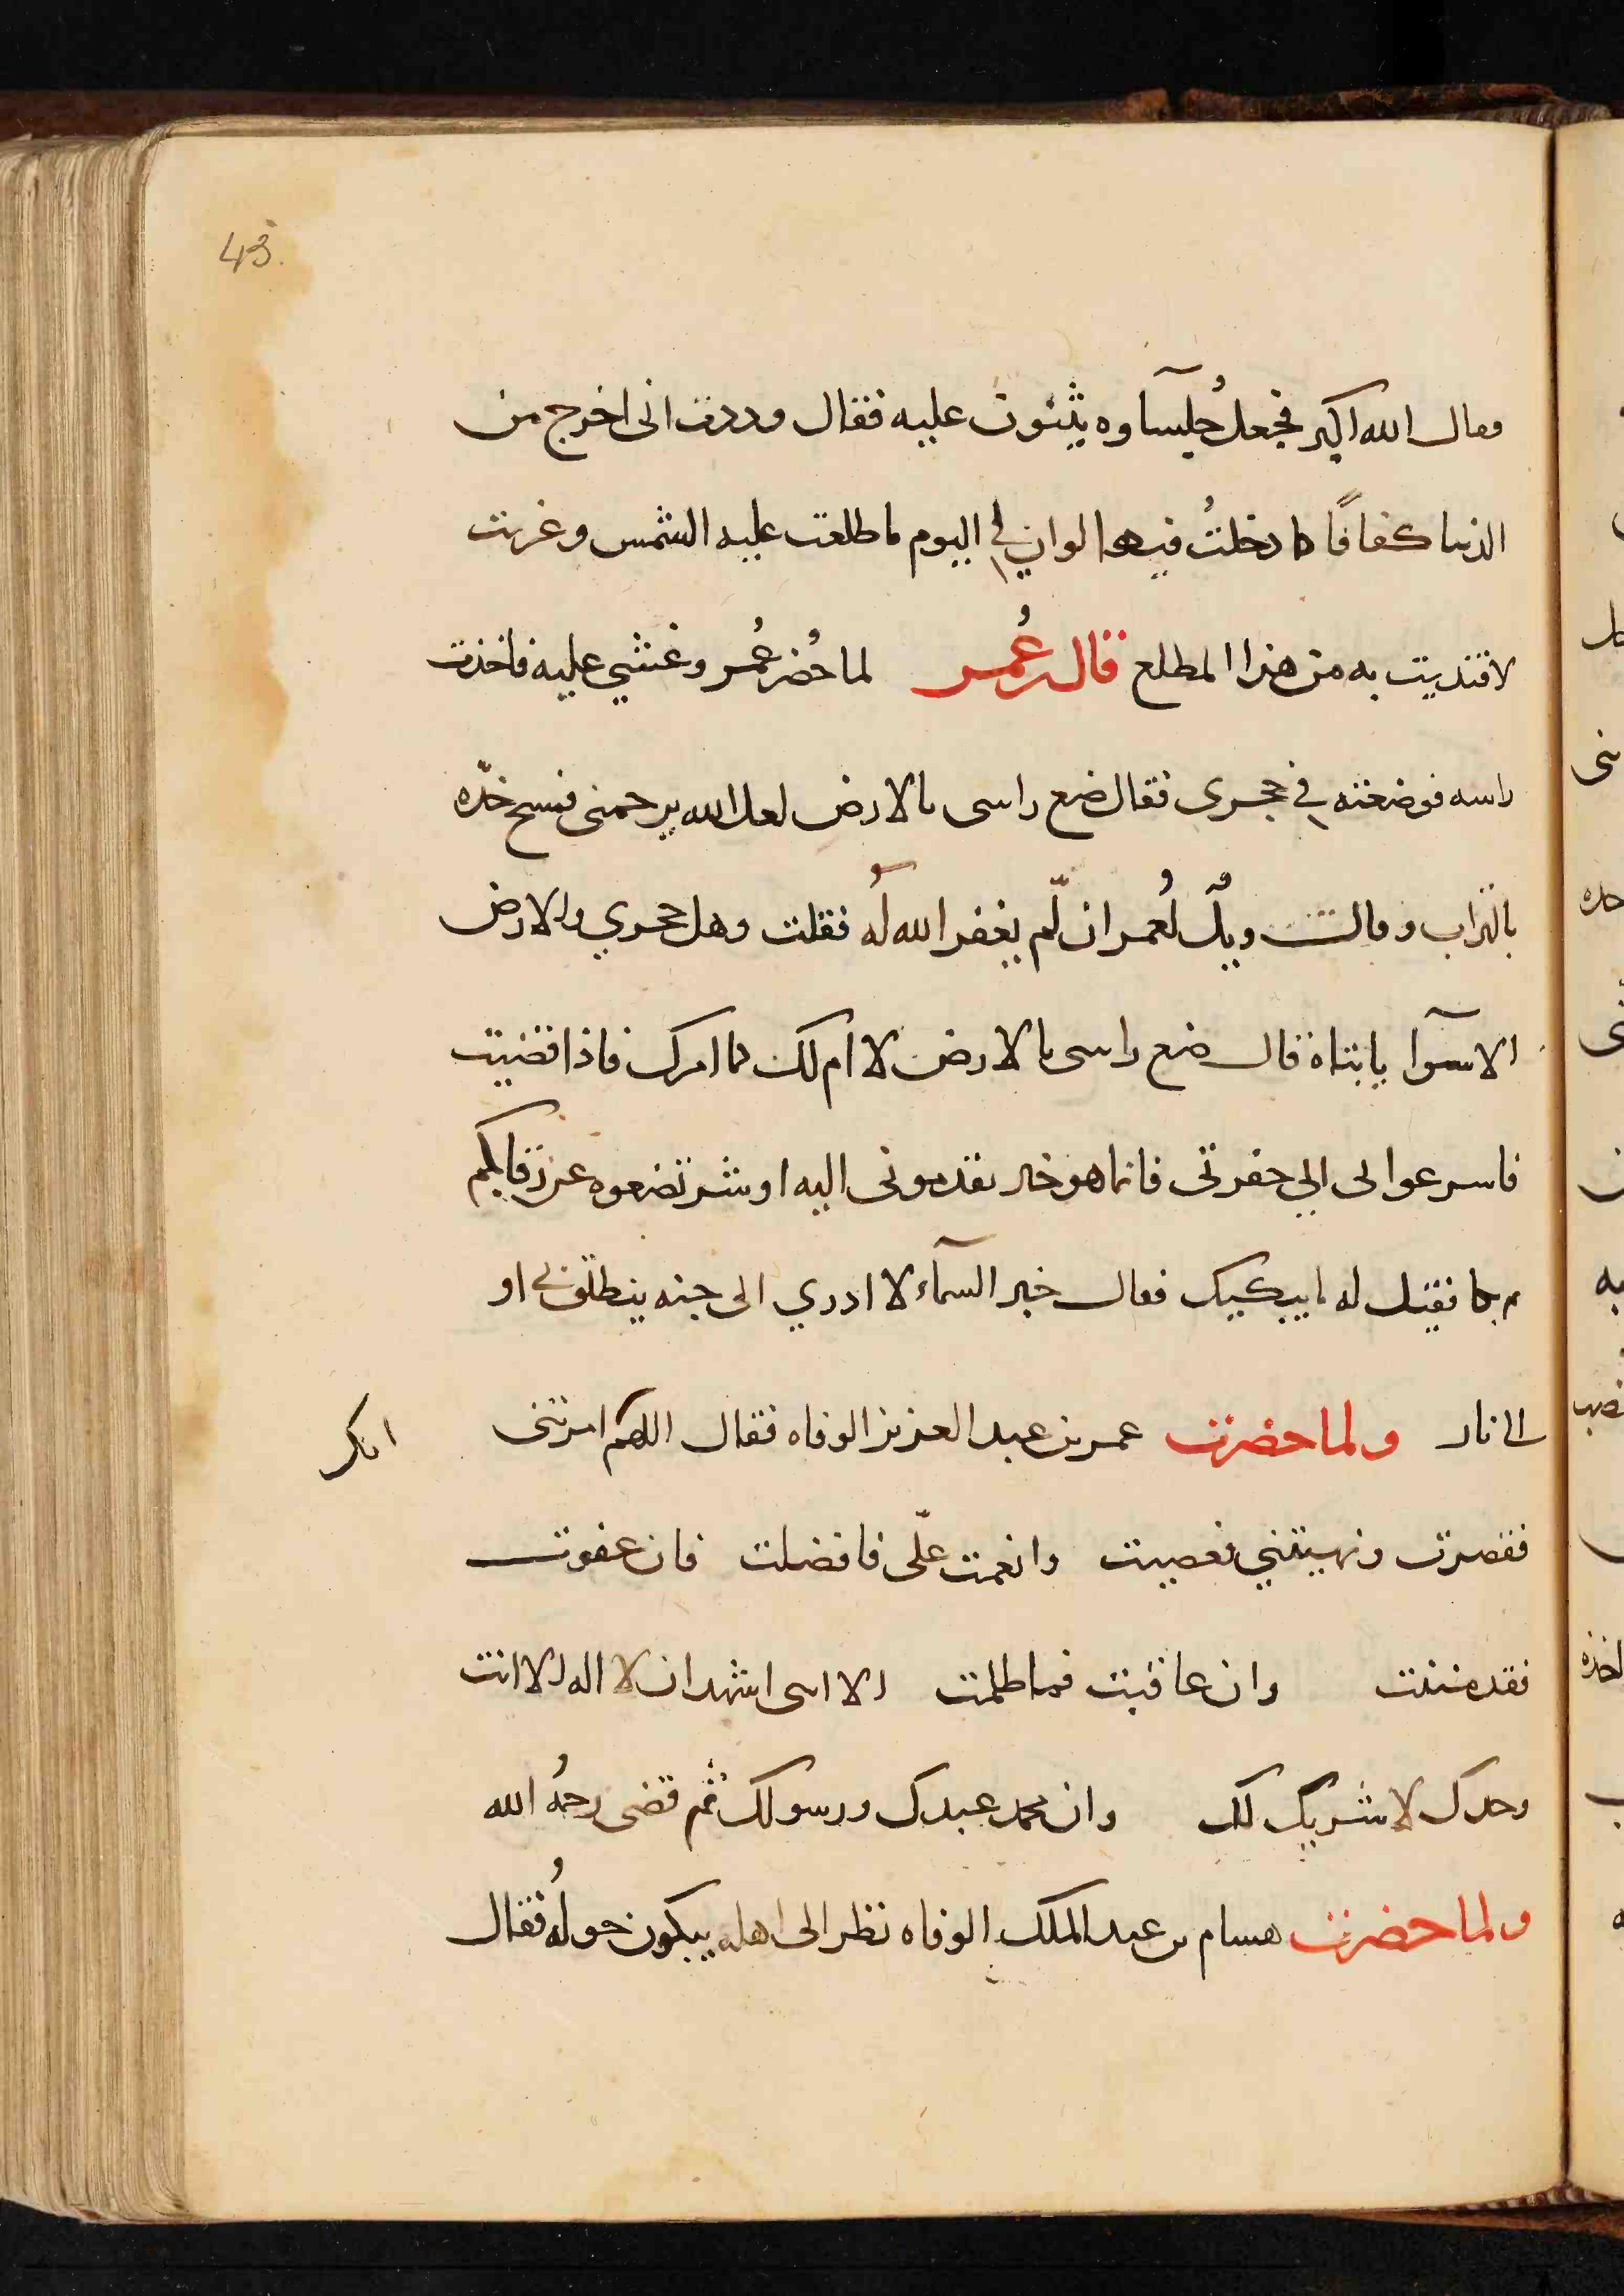 43.
فقال الله اكبر فجعل جُلسآوه يثنون عليه فقال وددت انى اخرج من
الدنيا كفافًا كما دخلتُ فيها لو ان لي اليوم ما طلعت عليه الشمس وغربت
لافتديت به من هذا المطلع قال بن عُمر لما حُضر عُمر وغشي عليه فاخذت
راسه فوضعته في حجرى فقال ضع راسى بالارض لعل الله يرحمنى فمسح خدّه
بالتراب وقال ويلٌ لعُمر ان لّم يغفر الله لهُ فقلت وهل حجري والارض
الا سوآ يا ابتاه قال ضع راسى بالارض لا ام لك كما امرك فاذا قضيت
فاسرعوا بى الى حفرتى فانما هو خير تقدمونى اليه او شر تضعوه عن رقابكم
ثم بكا فقيل له ما يبكيك فقال خبر السمآء لا ادري الى جنه ينطلق بي او
الى نار ولما حضرت عمر بن عبد العزيز الوفاه فقال اللهم امرتنى
فقصرت ونهيتني فعصيت وانعمت علّى فافضلت فان عفوت
فقد مننت وان عاقبت فما ظلمت الا انى اشهد ان لا اله الا انت
وحدك لا شريك لك وان محمد عبدك ورسولك ثم قضى رحمهُ الله
ولما حضرت هسام بن عبد الملك الوفاه نظر الى اهله يبكون حولهُ فقال